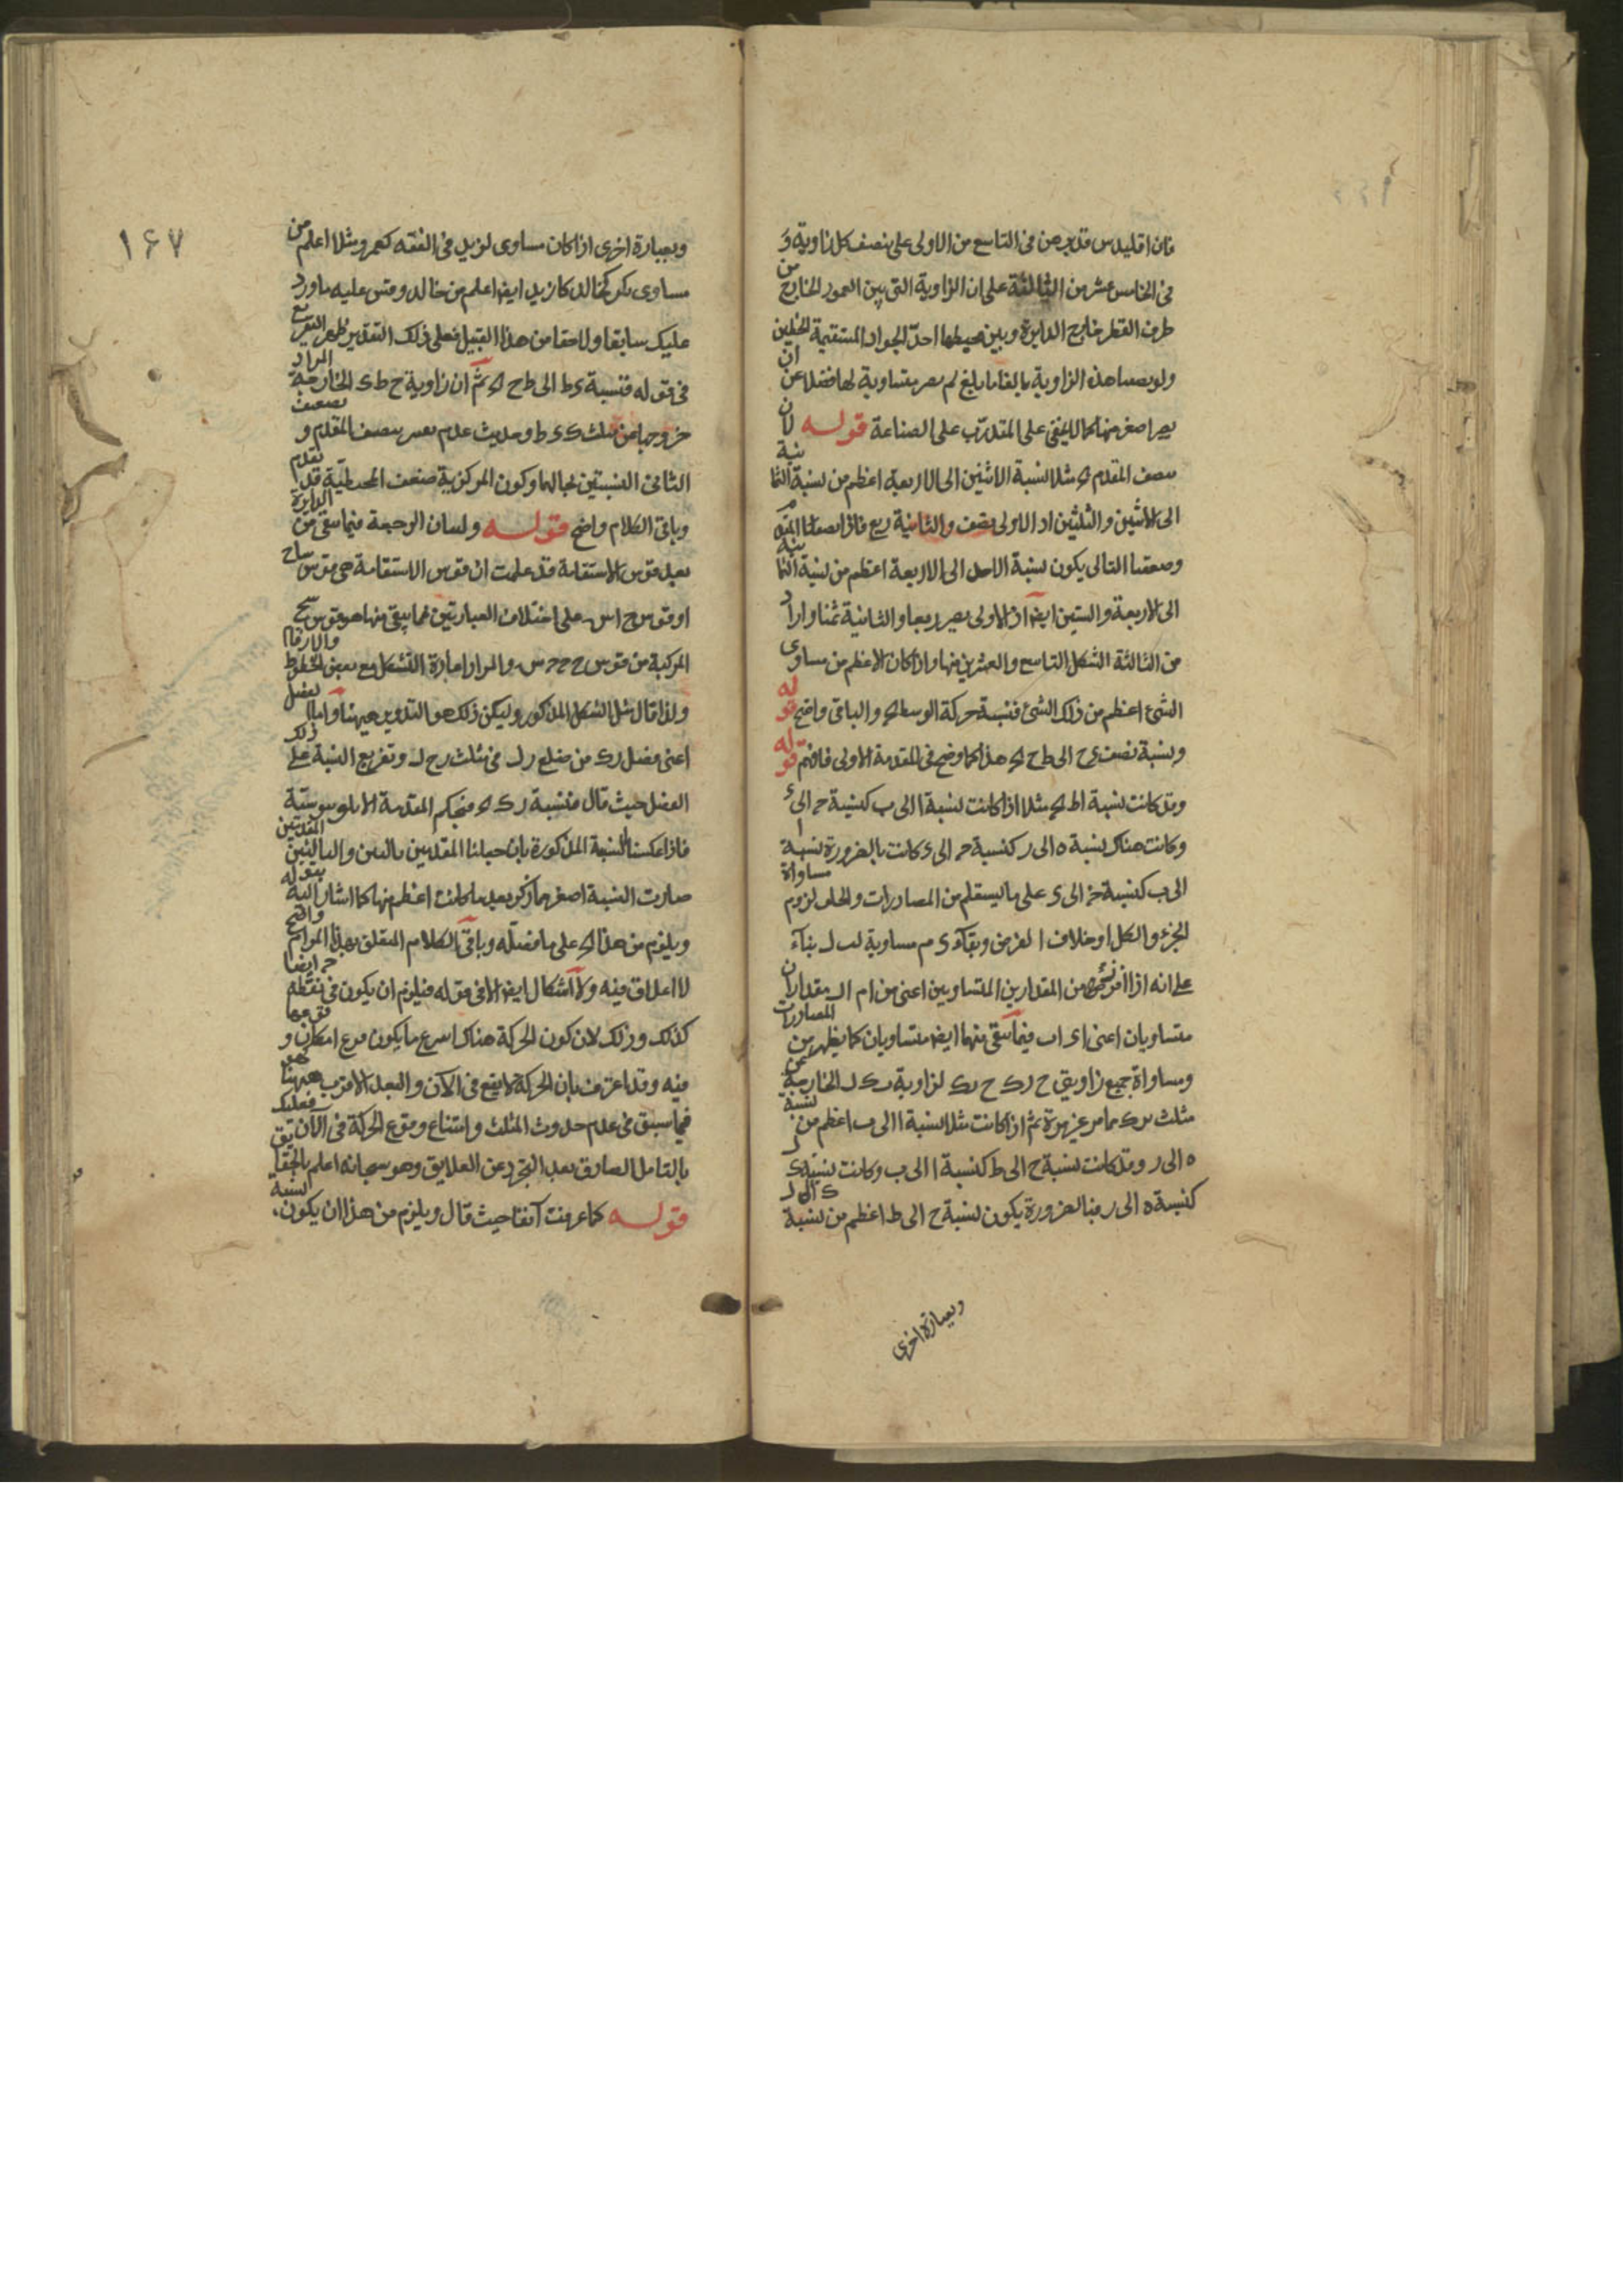 فان اقليدس قد برهن فى التاسع من الاولى على نصف كل زاوية و
فى الخامس عشر من الثالثة على ان الزاوية التى بين العمود الخارج من
طرف القطر خارج الدايرة وبين محيطها احدّ الحواد المستقيمة الخطين
ولو نصفنا هذه الزاوية بالغا ما بلغ لم يصر مساوية لها فضلا عن ان
يصير اصغر منها كما لا يخفى على المتدرّب على الصناعة قوله لان
نصف المقدم اه مثلا نسبة الاثنين الى الاربعة اعظم من نسبة الثمانية
الى الاثنين والثلثين اذ الاولى نصف والثانية ربع فاذا نصفنا المقدم
وضعفنا التالى يكون نسبة الاحد الى الاربعة اعظم من نسبة
الى الاربعة والستين ايضا اذ الاولى يصير ربعا والثانية ثمنا واراد
من الثالثة الشكل التاسع والعشرين منها واذا كان الاعظم من مساوى
الشئ اعظم من ذلك الشئ فنسبة حركة الوسط اه والباقى واضح قوله
ونسبة نصف ى ح الى ط ح اه هذا كما وضح فى المقدمة الاولى فافهم قوله
وقد كانت نسبة اط اه مثلا اذا كانت نسبة ا الى ب كنسبة ح الى ء
وكانت هناك نسبة ه الى ر كنسبة ح الى ى كانت بالضرورة نسبة ا
الى ب كنسبة ح الى ى على ما يستعلم من المصادرات والخلف لزوم مساواة
الجزء والكل او خلاف الفرض وبقاء ى م مساوية لب ل بناء
على انه اذا افرز شئ من المقدارين المتساويين اعنى من ام ال مقداران
متساويان اعنى اى اب فيما بقى منهما ايضا متساويان كما يظهر من المصادرات
ومساواة جميع زاويتى ح رك ح ك لزاوية ب ك ل الخارجة عن
مثلث مما مر غير مرة ثم اذا كانت مثلا نسبة ا الى ب اعظم من نسبة
ه الى ر وقد كانت نسبة ح الى ط كنسبة ا الى ب وكانت نسبة ى
كنسبة ه الى ر فبالضرورة يكون نسبة ح الى ط اعظم من نسبة ى الى ل
وبعبارة اخرى
١٦٧
وبعبارة اخرى اذا كان مساوى لزيد فى الفقه كعمرو مثلا اعلم من
مساوى بكر كخالد كان زيد ايضا اعلم من خالد وقس عليه ما ورد
عليك سابقا ولاحقا من هذا القبيل فعلى ذلك التقدير ظهر التفريع
فى قوله فنسبة ى ط الى ط ح اه ثم ان زاوية ح ط ى الخارجة المراد
خروجها عن مثلث ك ى ط وحديث عدم تغير نصف المقدم و
الثانى النسبتين بحالها وكون المركزية ضعف المحيطية قد تقدم
وباقى الكلام واضح قوله ولسان الرجعة فيما بقى من الدايرة
بعد قوس الاستقامة قد علمت ان قوس الاستقامة هى قوس
او قوس ج اس على اختلاف العبارتين فما يبقى منها هو قوس
المركبة من قوس والمراد اعادة التشكل مع بعض الخطوط والارقام
ولذا قال مثل الشكل المذكور وليكن ذلك هو التدوير ههنا واما
اعنى فضل رك من ضلع رل فى مثلث رح ل وتفريع النسبة على ذلك
الفضل حيث قال فنسبة رك اه فبحكم المقدمة
فاذا عكسنا النسبة المذكورة بان جعلنا المقدمين تاليين والتاليين المقدمين
صارت النسبة اصغر مما ذكر بعد ما كانت اعظم منها كما اشار اليه بقوله
ويلزم من هذا اه على ما فصله وباقى الكلام المتعلق بهذا المرام واضح
لا اغلاق فيه ولا اشكال ايضا الا فى قوله فيلزم ان يكون فى نقطة ح ايضا
كذلك وذلك لان كون الحركة هناك اسرع ما يكون فرع امكان وقوعها
فيه وقد اعترف بان الحركة لا يقع فى الآن والبعد الاقرب ههنا
فيما سبق فى عدم حدوث المثلث وامتناع وقوع الحركة فى الآن فعليك
بالتامل الصادق بعد التجرد عن العلايق وهو سبحانه اعلم بالحقايق
قوله كما عرفت آنفا حيث قال ويلزم من هذا ان يكون نسبة